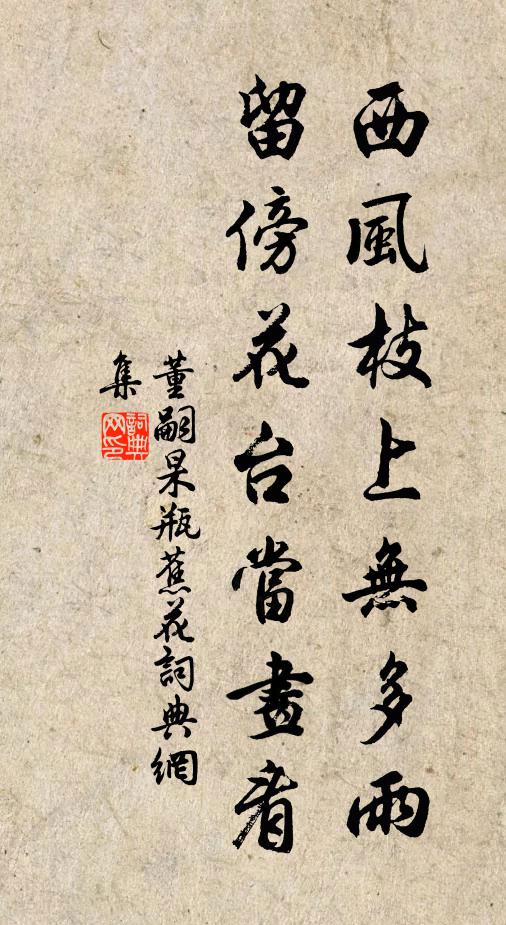 西風枝上無多雨
留傍花台當畫看
董嗣杲瓶蕉花詞典網
集
詞典
网印